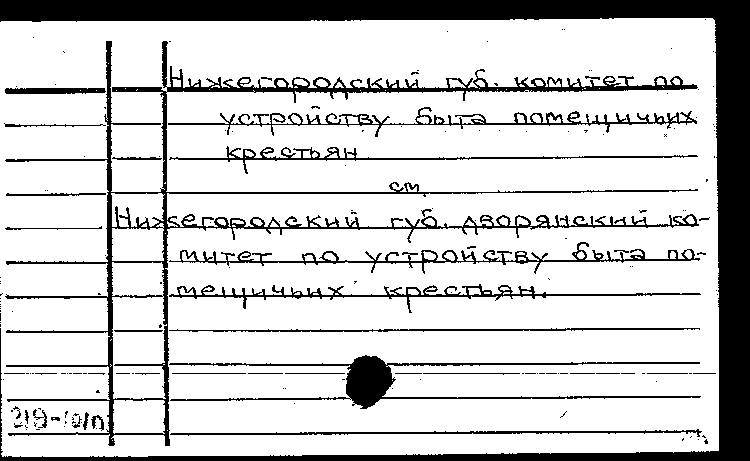 Нижегородский губ. комитет по
устройству быта помещичьих
крестьян
см.
Нижегородский губ. дворянский ко-
митет по устройству быта по-
мещичьих крестьян.